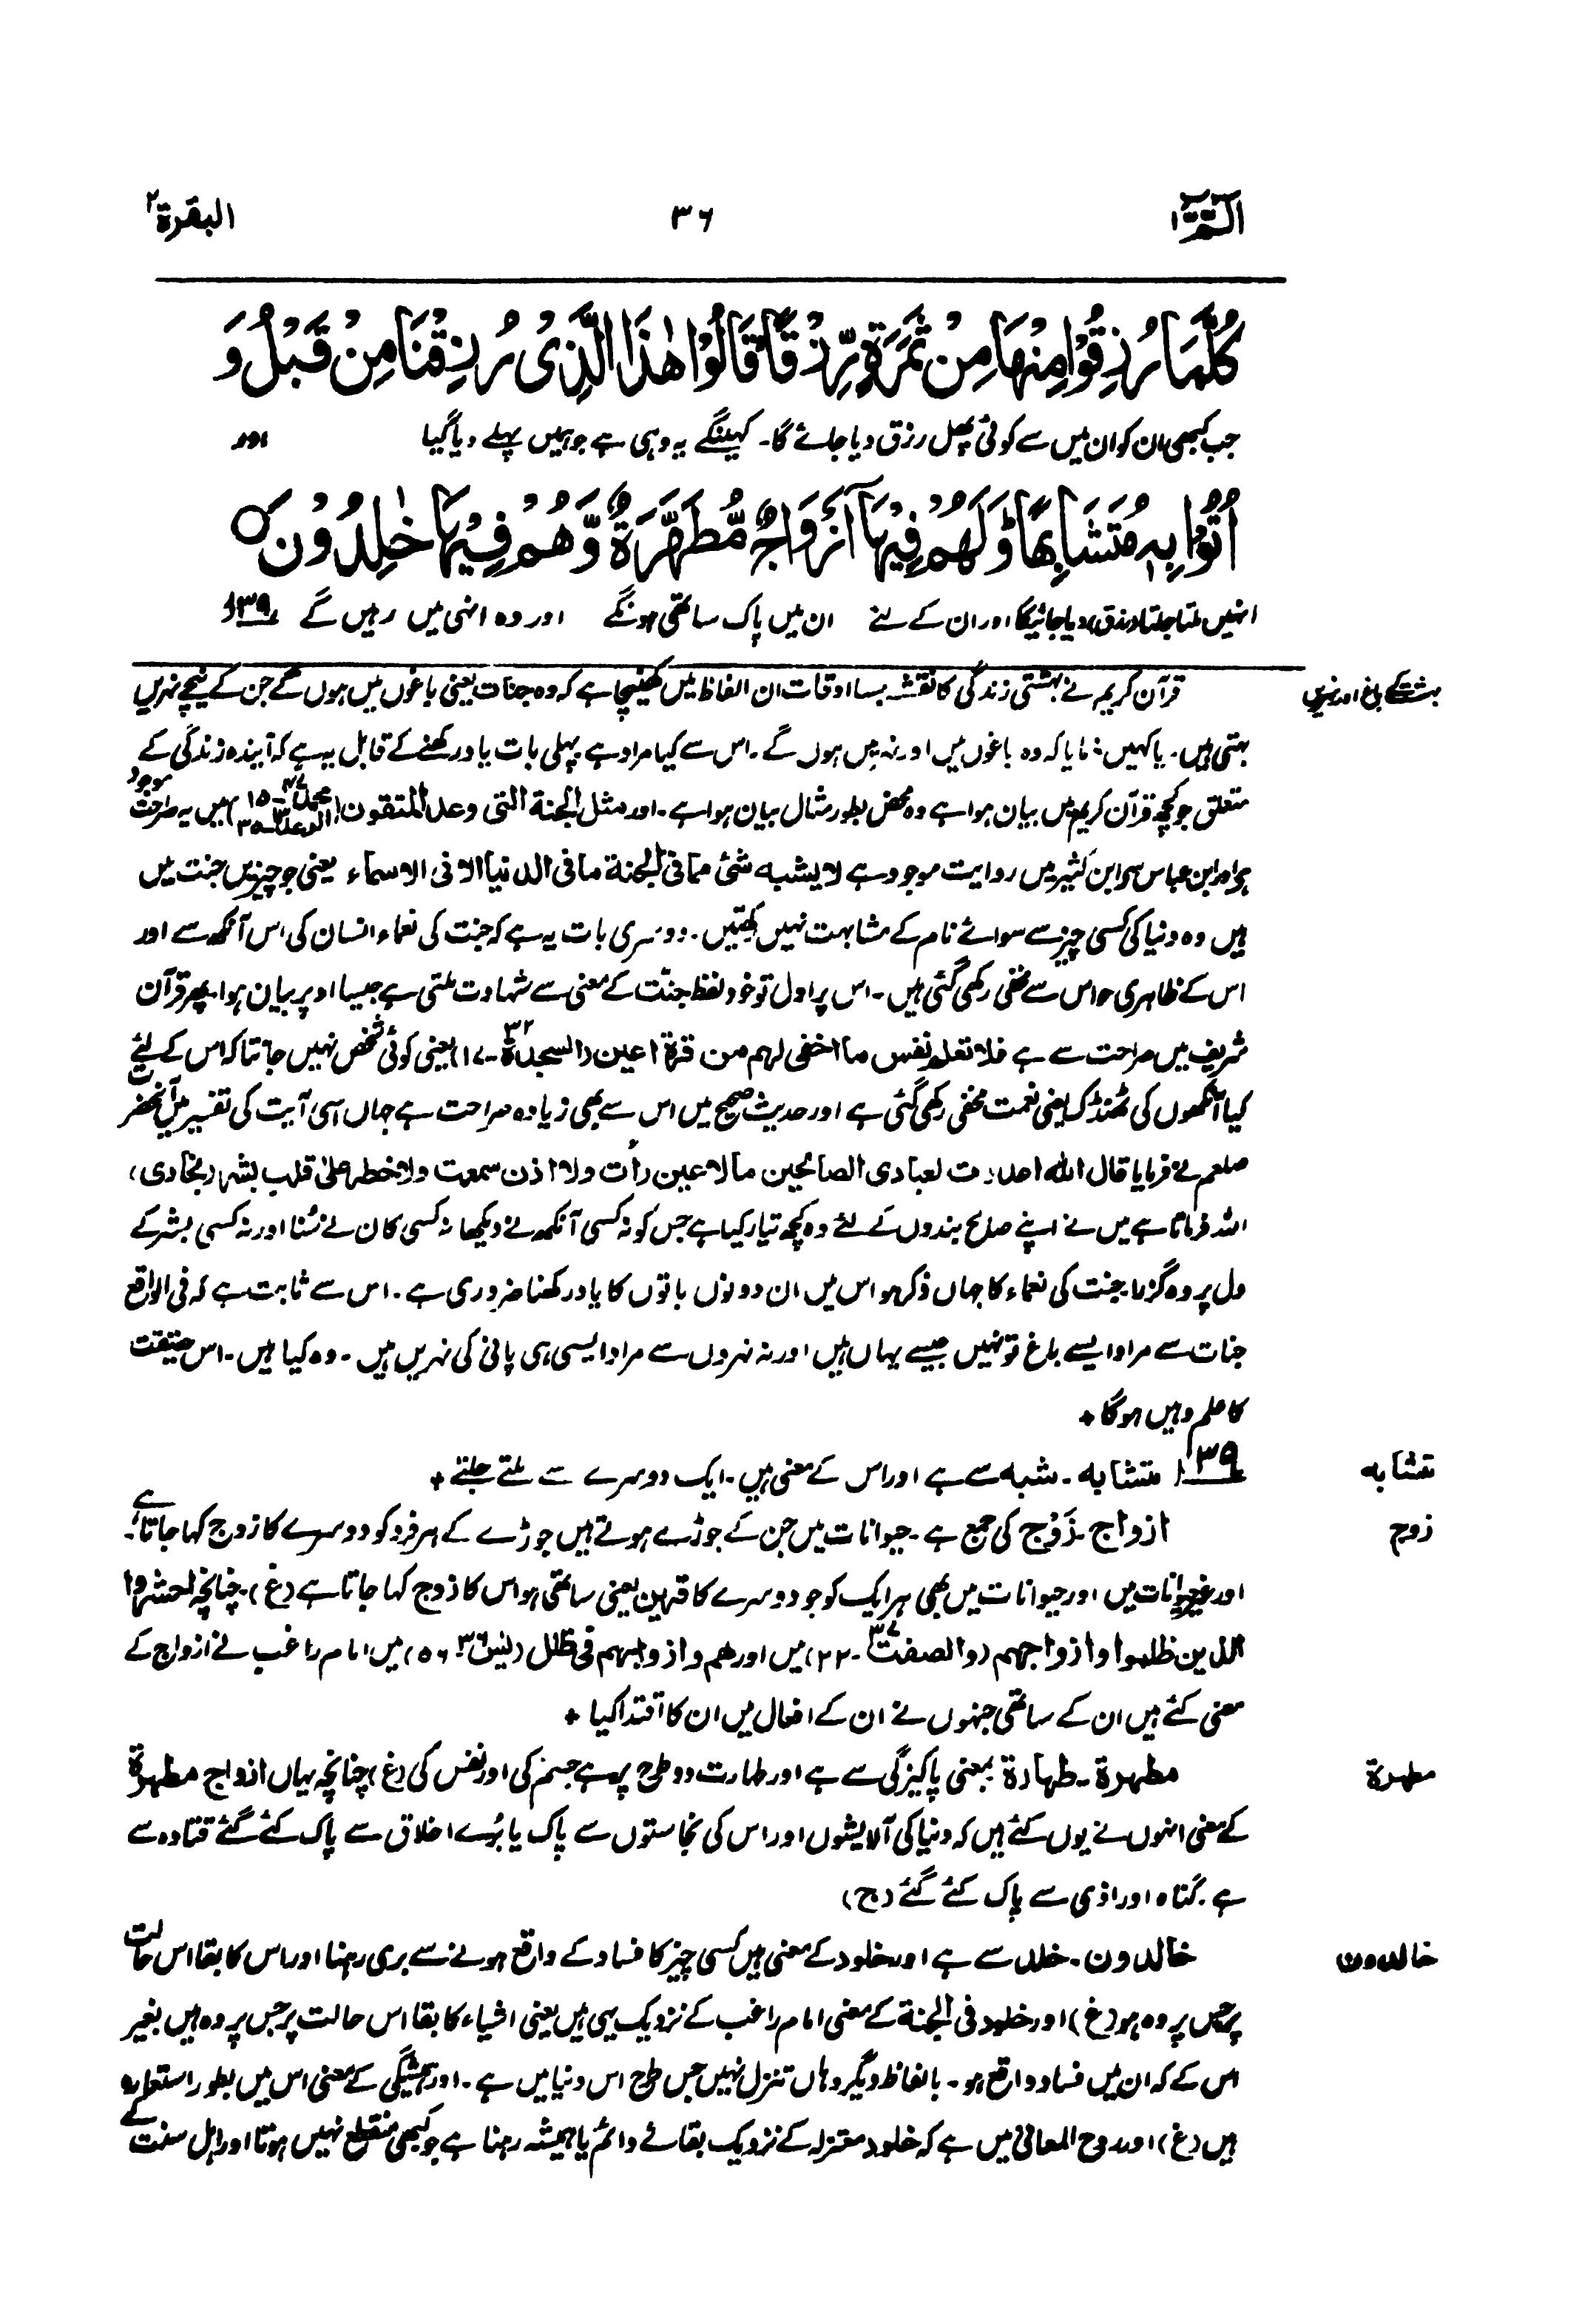 الٓمّٓ ۱
۳۶
البقرة ۲
كُلَّمَا رُزِقُوْا مِنْهَا مِنْ ثَمَرَةٍ رِّزْقًا قَالُوْا هٰذَا الَّذِیْ رُزِقْنَا مِنْ قَبْلُ وَ
جب کبھی ان کو ان میں سے کوئی پھل رزق دیا جائے گا۔ کہینگے یہ وہی ہے جو ہمیں پہلے دیا گیا اور
اُتُوْا بِهٖ مُتَشَابِهًا ؕ وَلَهُمْ فِیْهَاۤ اَزْوَاجٌ مُّطَهَّرَةٌ وَّهُمْ فِیْهَا خٰلِدُوْنَ ○
انہیں ملتا جلتا (رزق) دیا جائیگا اور ان کے لئے ان میں پاک ساتھی ہونگے اور وہ انہی میں رہیں گے ۳۹
بہشت کے باغ اور نہریں
قرآن کریم نے بہشتی زندگی کا نقشہ بسا اوقات ان الفاظ میں کھینچا ہے کہ وہ جنات یعنی باغوں میں ہوں گے جن کے نیچے نہریں
بہتی ہیں۔ یا کہیں فرمایا کہ وہ باغوں میں اور نہر میں ہوں گے۔ اس سے کیا مراد ہے پہلی بات یاد رکھنے کے قابل یہ ہے کہ آیندہ زندگی کے
متعلق جو کچھ قرآن کریم میں بیان ہوا ہے وہ محض بطور مثال بیان ہوا ہے۔ اور مثل الجنة التی وعد المتقون (محمد ۴۷۔۱۵ الرعد ۱۳۔۳۵) میں یہ صراحت موجود
ہے اور ابن عباس سے ابن کثیر میں روایت موجود ہے لا یشبه شئ مما فی الجنة ما فی الدنیا الا فی الاسماء یعنی جو چیزیں جنت میں
ہیں وہ دنیا کی کسی چیز سے سوائے نام کے مشابہت نہیں رکھتیں۔ دوسری بات یہ ہے کہ جنت کی نعماء انسان کی اس آنکھ سے اور
اس کے ظاہری حواس سے مخفی رکھی گئی ہیں۔ اس پر اول تو خود لفظ جنّت کے معنی سے شہادت ملتی ہے جیسا اوپر بیان ہوا۔ پھر قرآن
شریف میں صراحت سے ہے فلا تعلم نفس ما اخفی لهم من قرة اعین (السجدة ۳۲۔۱۷) یعنی کوئی شخص نہیں جانتا کہ اس کے لئے
کیا آنکھوں کی ٹھنڈک یعنی نعمت مخفی رکھی گئی ہے اور حدیث صحیح میں اس سے بھی زیادہ صراحت ہے جہاں اسی آیت کی تفسیر میں آنحضرت
صلعم نے فرمایا قال الله اعددت لعبادی الصالحین ما لا عین رأت ولا اذن سمعت ولا خطر علیٰ قلب بشر (بخاری)
اللہ فرماتا ہے میں نے اپنے صالح بندوں کے لئے وہ کچھ تیار کیا ہے جس کو نہ کسی آنکھ نے دیکھا نہ کسی کان نے سُنا اور نہ کسی بشر کے
دل پر وہ گزرا۔ جنت کی نعماء کا جہاں ذکر ہو اس میں ان دونوں باتوں کا یاد رکھنا ضروری ہے۔ اس سے ثابت ہے کہ فی الواقع
جنات سے مراد ایسے باغ تو نہیں جیسے یہاں ہیں اور نہ نہروں سے مراد ایسی ہی پانی کی نہریں ہیں۔ وہ کیا ہیں۔ اس حقیقت
کا علم وہیں ہوگا +
تشابه
۳۹ متشابه۔ شبه سے ہے اور اس کے معنی ہیں۔ ایک دوسرے سے ملتے جلتے +
زوج
ازواج۔ زَوْج کی جمع ہے۔ حیوانات میں جن کے جوڑے ہوتے ہیں جوڑے کے ہر فرد کو دوسرے کا زوج کہا جاتا ہے۔
اور غیر حیوانات میں اور حیوانات میں بھی ہر ایک کو جو دوسرے کا قرین یعنی ساتھی ہو اس کا زوج کہا جاتا ہے (غ)۔ چنانچہ احشروا
الذین ظلموا وازواجهم (والصفت ۳۷۔۲۲) میں اور هم وازواجهم فی ظلل (یٰس ۳۶۔۵۶) میں امام راغب نے ازواج کے
معنی کئے ہیں ان کے ساتھی جنہوں نے ان کے افعال میں ان کا اقتدا کیا +
مطهرة
مطهرة۔ طهارة بمعنی پاکیزگی سے ہے اور طہارت دو طرح پر ہے جسم کی اور نفس کی (غ) چنانچہ یہاں ازواج مطهرة
کے معنی انہوں نے یوں کئے ہیں کہ دنیا کی آلایشوں اور اس کی نجاستوں سے پاک یا بُرے اخلاق سے پاک کئے گئے قتادہ سے
ہے۔ گناہ اور اذی سے پاک کئے گئے (ج)
خالدون
خالدون۔ خلد سے ہے اور خلود کے معنی ہیں کسی چیز کا فساد کے واقع ہونے سے بری رہنا اور اس کا بقا اس حالت
پر جس پر وہ ہو (غ) اور خلود فی الجنة کے معنی امام راغب کے نزدیک یہی ہیں یعنی اشیاء کا بقا اس حالت پر جس پر وہ ہیں بغیر
اس کے کہ ان میں فساد واقع ہو۔ بالفاظ دیگر وہاں تنزل نہیں جس طرح اس دنیا میں ہے۔ اور ہمیشگی کے معنی اس میں بطور استعارہ
ہیں (غ) اور روح المعانی میں ہے کہ خلود معتزلہ کے نزدیک بقائے دائم یا ہمیشہ رہنا ہے جو کبھی منقطع نہیں ہوتا اور اہل سنت کے